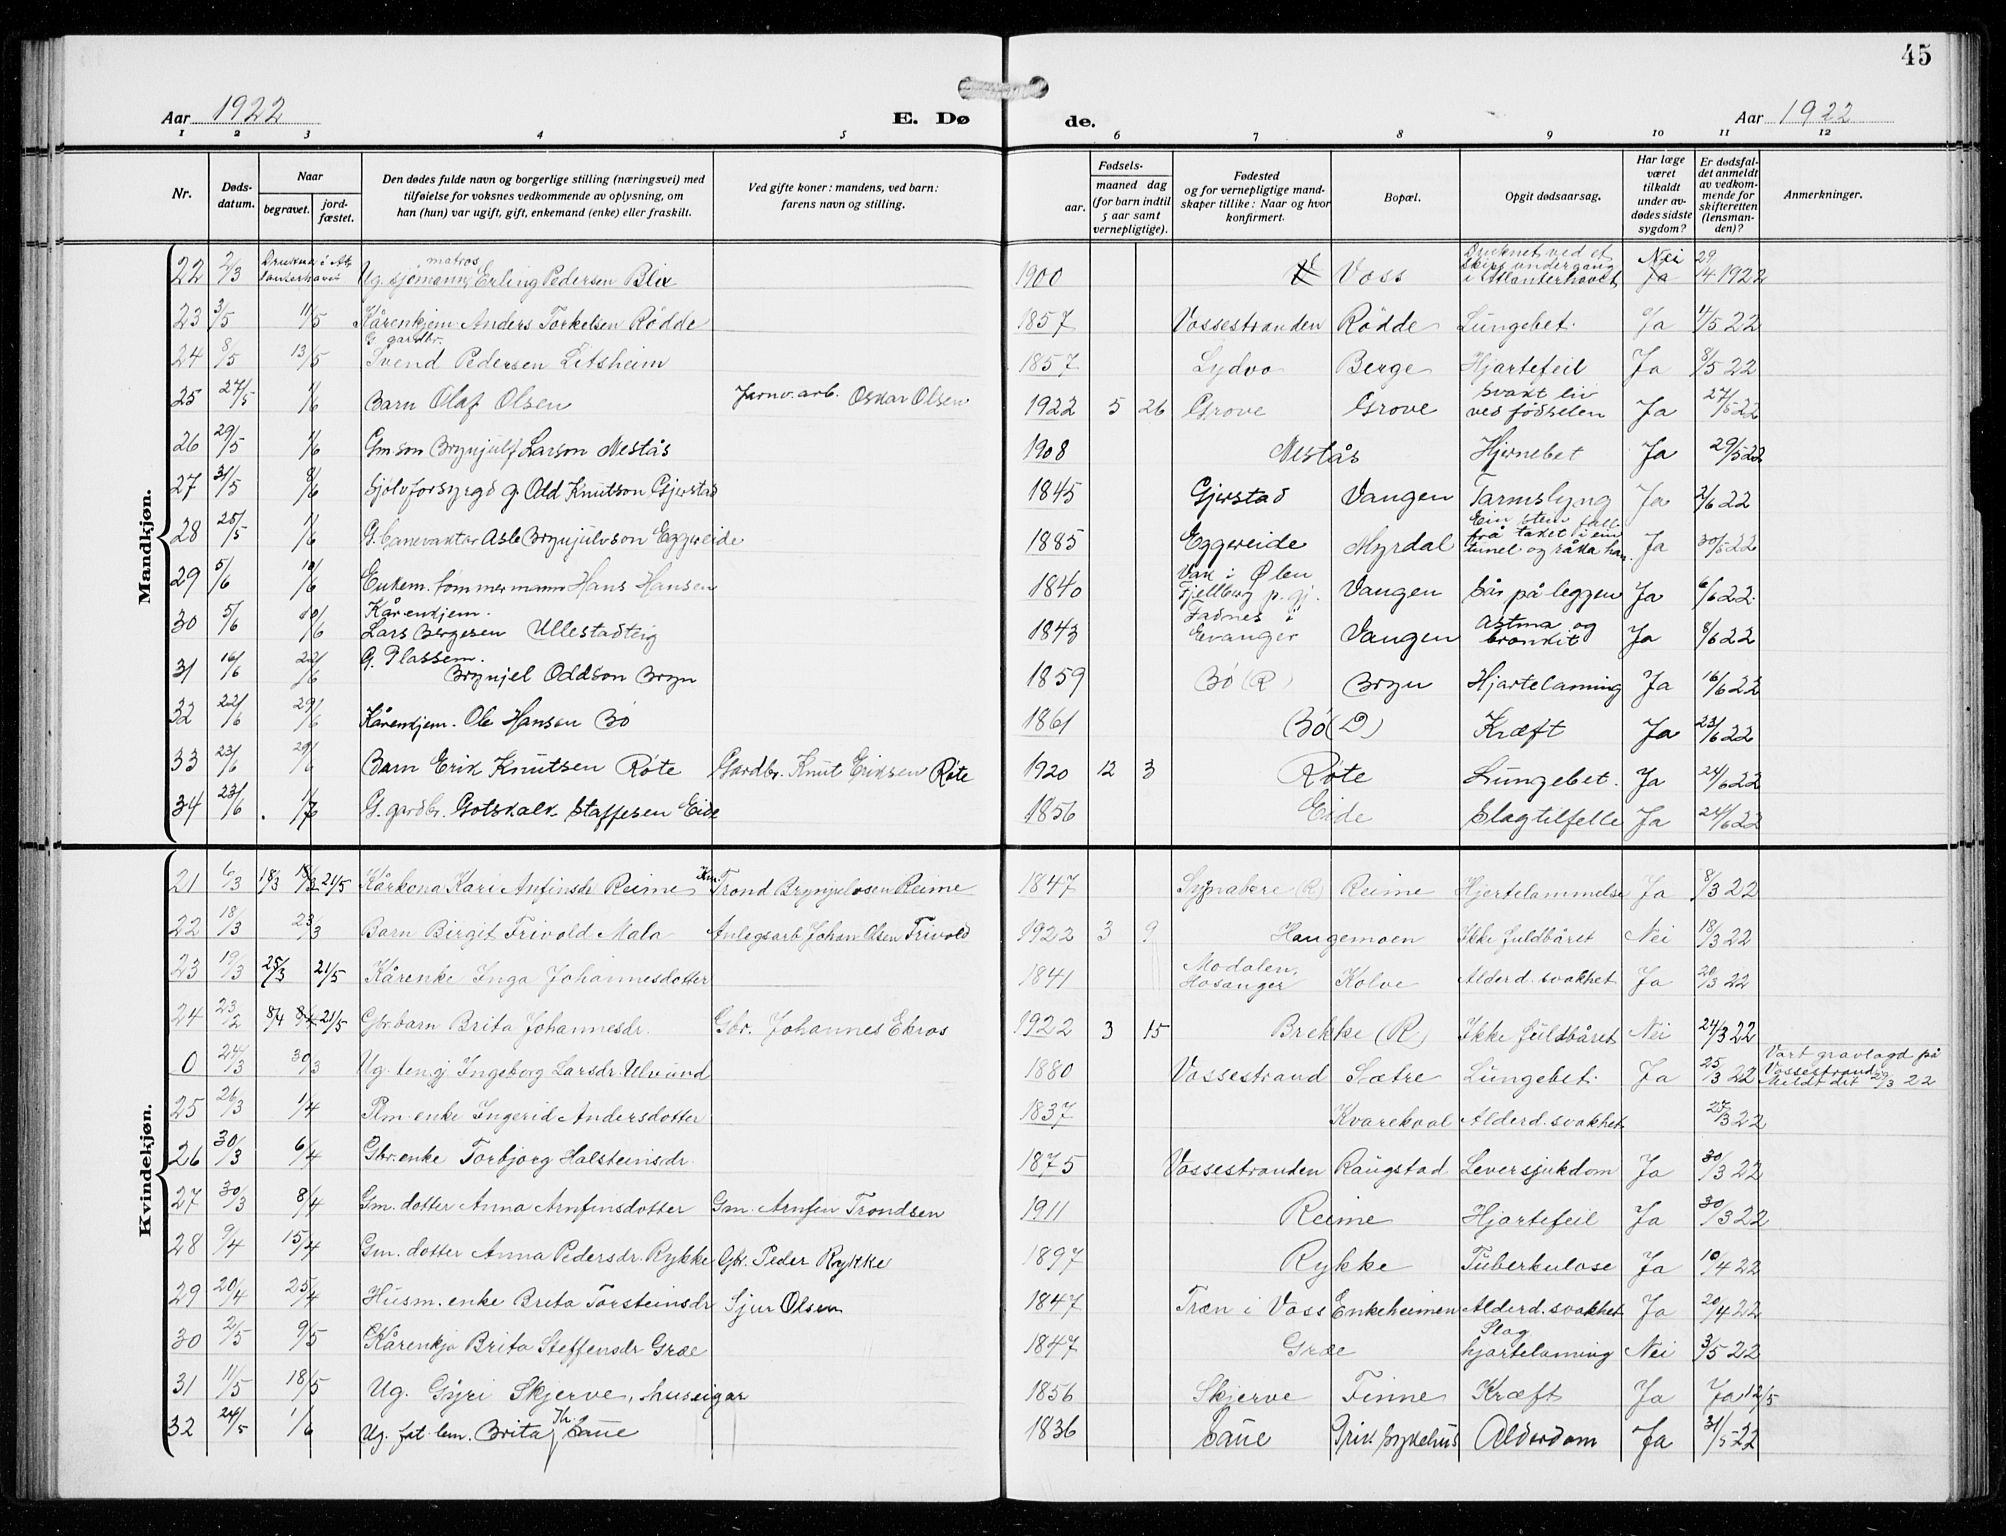 45
Aar 1922 E. Dø de. Aar 1922
1 2 3 4 5 6 7 8 9 10 11 12
Nr.
Døds-datum.
Naar
begravet.
jord-fæstet.
Den dødes fulde navn og borgerlige stilling (næringsvei) med tilføielse for voksnes vedkommende av oplysning, om han (hun) var ugift, gift, enkemand (enke) eller fraskilt.
Ved gifte koner: mandens, ved barn: farens navn og stilling.
Fødsels-
aar.
maaned dag
(for barn indtil 5 aar samt vernepligtige).
Fødested og for vernepligtige mandskaper tillike: Naar og hvor konfirmert.
Bopæl.
Opgit dødsaarsag.
Har læge været tilkaldt under av-dødes sidste sygdom?
Er dødsfal-det anmeldt av vedkom-mende for skifteretten (lensman-den)?
Anmerkninger.
Mandkjøn.
22 2/3 Druknet i Atlanterhavet Ug. sjømann, matros Erling Pedersen Blix 1900 Voss Druknet ved et skips undergang i Atlanterhavet Nei 29/4 1922
23 3/5 11/5 Kårenkjem Anders Torkelsen Rødde 1857 Vossestranden Rødde Lungebet. Ja 4/5 22
24 8/5 13/5 G. gardbr. Svend Pedersen Litsheim 1857 Lydvo Berge Hjartefeil Ja 8/5 22
25 27/5 1/6 Barn Olaf Olsen Jarnv. arb. Oskar Olsen 1922 5 26 Grove Grove Svakt liv ved fødselen Ja 27/5 22
26 29/5 1/6 Gm. son Brynjulf Larson Nestås 1908 Nestås Hjernebet Ja 29/5 22
27 31/5 8/6 Sjølvforsyrgd g. Odd Knutson Gjerstad 1845 Gjerstad Vangen Tarmslyng Ja 2/6 22
28 25/5 1/6 G. banevaktar Asle Brynjulvson Eggereide 1885 Eggereide Myrdal Ein stein fall frå taket i ein tunel og råka han Ja 30/5 22
29 5/6 10/6 Enkem. tømmermann Hans Hansen 1840 Vak i Ølen Fjellberg p. gj. Vangen Sår på leggen Ja 6/6 22
30 5/6 10/6 Kårenkjem. Lars Bergesen Ullestadteig 1843 Fadnes i Evanger Vangen Astma og bronkit Ja 8/6 22
31 16/6 22/6 G. Plassem. Brynjel Oddson Bryn 1859 Bø (R) Bryn Hjartelaming Ja 16/6 22
32 22/6 29/6 Kårenkjem. Ole Hansen Bø 1861 Bø (D) Kræft Ja 23/6 22
33 23/6 29/6 Barn Erik Knutsen Røte Gardbr. Knut Eriksen Røte 1920 12 3 Røte Lungebet. Ja 24/6 22
34 23/6 1/7 G. gardbr. Gotskalk Staffesen Eide 1856 Eide Slagtilfelle Ja 24/6 22
Kvindekjøn.
21 6/3 18/3 18/3 21/5 Kårkona Kari Anfinsdr Reime Km. Trond Brynjulvsen Reime 1847 Reime Hjertelammelse Ja 8/3 22
22 18/3 23/3 Barn Birgit Trivold Mala Anlegsarb Johan Olsen Trivold 1922 3 9 Haugemoen Ikke fuldbåret Nei 18/3 22
23 19/3 25/3 21/5 Kårenke Inga Johannesdotter 1841 Modalen, Hosanger Kolve Alderd. svakhet Ja 20/3 22
24 23/2 8/4 8/4 21/5 Gbr. barn Brita Johannesdr. Gbr. Johannes Ekros 1922 3 15 Brekke (R) Ikke fuldbåret Nei 24/3 22
0 24/3 30/3 Ug. ten.gj Ingeborg Larsdr. Ulvund 1880 Vossestrand Sætre Lungebet. Ja 25/3 22 Vart gravlagd på Vossestrand. Meldt dit 29/3 22
25 26/3 1/4 Plm. enke Ingerid Andersdotter 1837 Kvarekval Alderd. svakhet 27/3 22
26 30/3 6/4 Gbr. enke Torbjørg Halsteinsdr. 1875 Vossestranden Raugstad Leversjukdom Ja 30/3 22
27 30/3 8/4 Gm. dotter Anna Arnfinsdotter Gm. Arnfin Trondsen 1911 Reime Hjartefeil Ja 30/3 22
28 9/4 15/4 Gm. dotter Anna Pedersdr. Rykke Gbr. Peder Rykke 1897 Rykke Tuberkulose Ja 10/4 22
29 20/4 25/4 Husm. enke Brita Torsteinsdr Sjur Olsen 1847 Træn i Voss Enkeheimen Alderd. svakhet Ja 20/4 22
30 2/5 9/5 Kårenkjo Brita Steffensdr Græe 1847 Græe Slag hjartelaming Nei 3/5 22
31 11/5 18/5 Ug. Gyri Skjerve, huseigar 1856 Skjerve Finne Kræft Ja Ja 12/5
32 24/5 1/6 Ug. fat. lem. Brita Th. Saue 1836 Saue Priv. sykehus Alderdom Ja 31/5 22